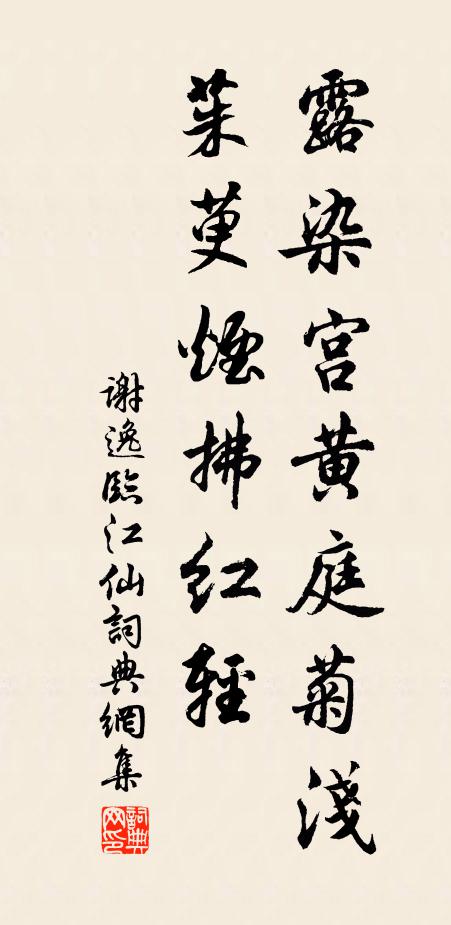 露染宫黄庭菊淺
茱萸煙拂红輕
謝逸臨江仙詞典網集
詞典网印